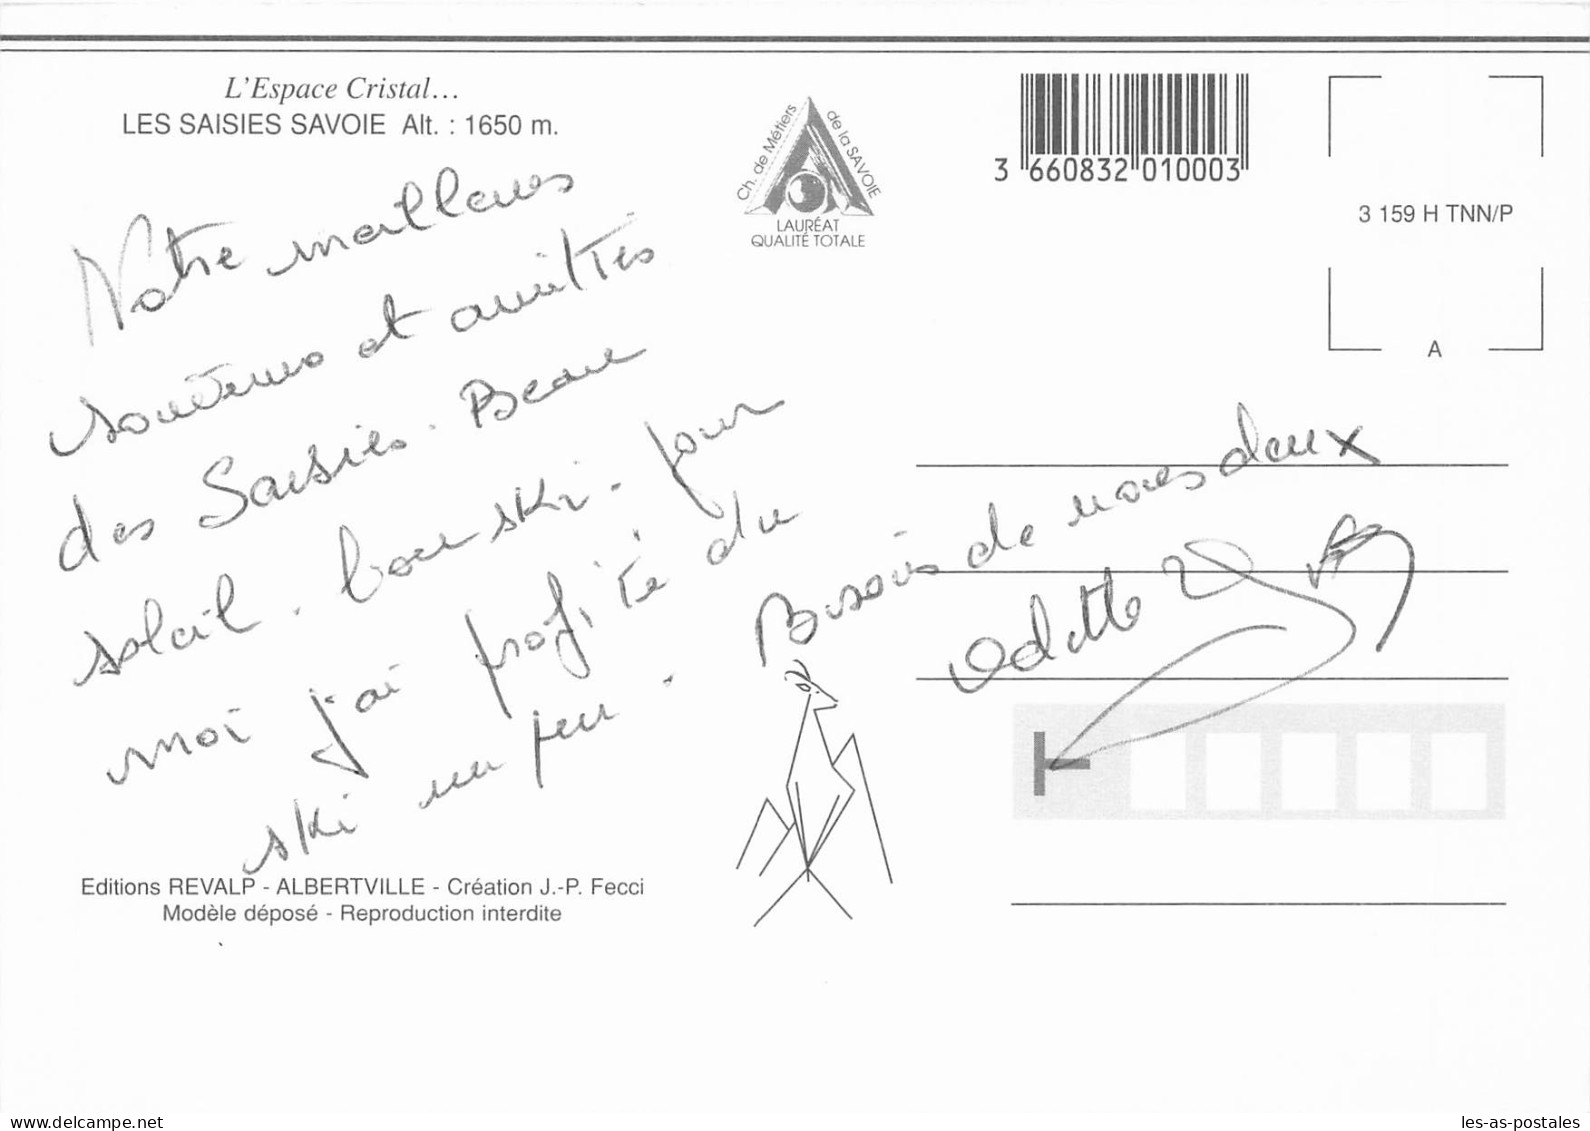 L'Espace Cristal...
LES SAISIES SAVOIE Alt. : 1650 m.
Ch. de Métiers de la SAVOIE
LAURÉAT
QUALITÉ TOTALE
3 660832 010003
3 159 H TNN/P
A
Notre meilleures
souvenus et amitiés
des Saisies. Beau
soleil. bon ski. pour
moi j'ai profité du
ski un peu.
Bisois de nous deux
Odette
Editions REVALP - ALBERTVILLE - Création J.-P. Fecci
Modèle déposé - Reproduction interdite
delcampe.net
les-as-postales